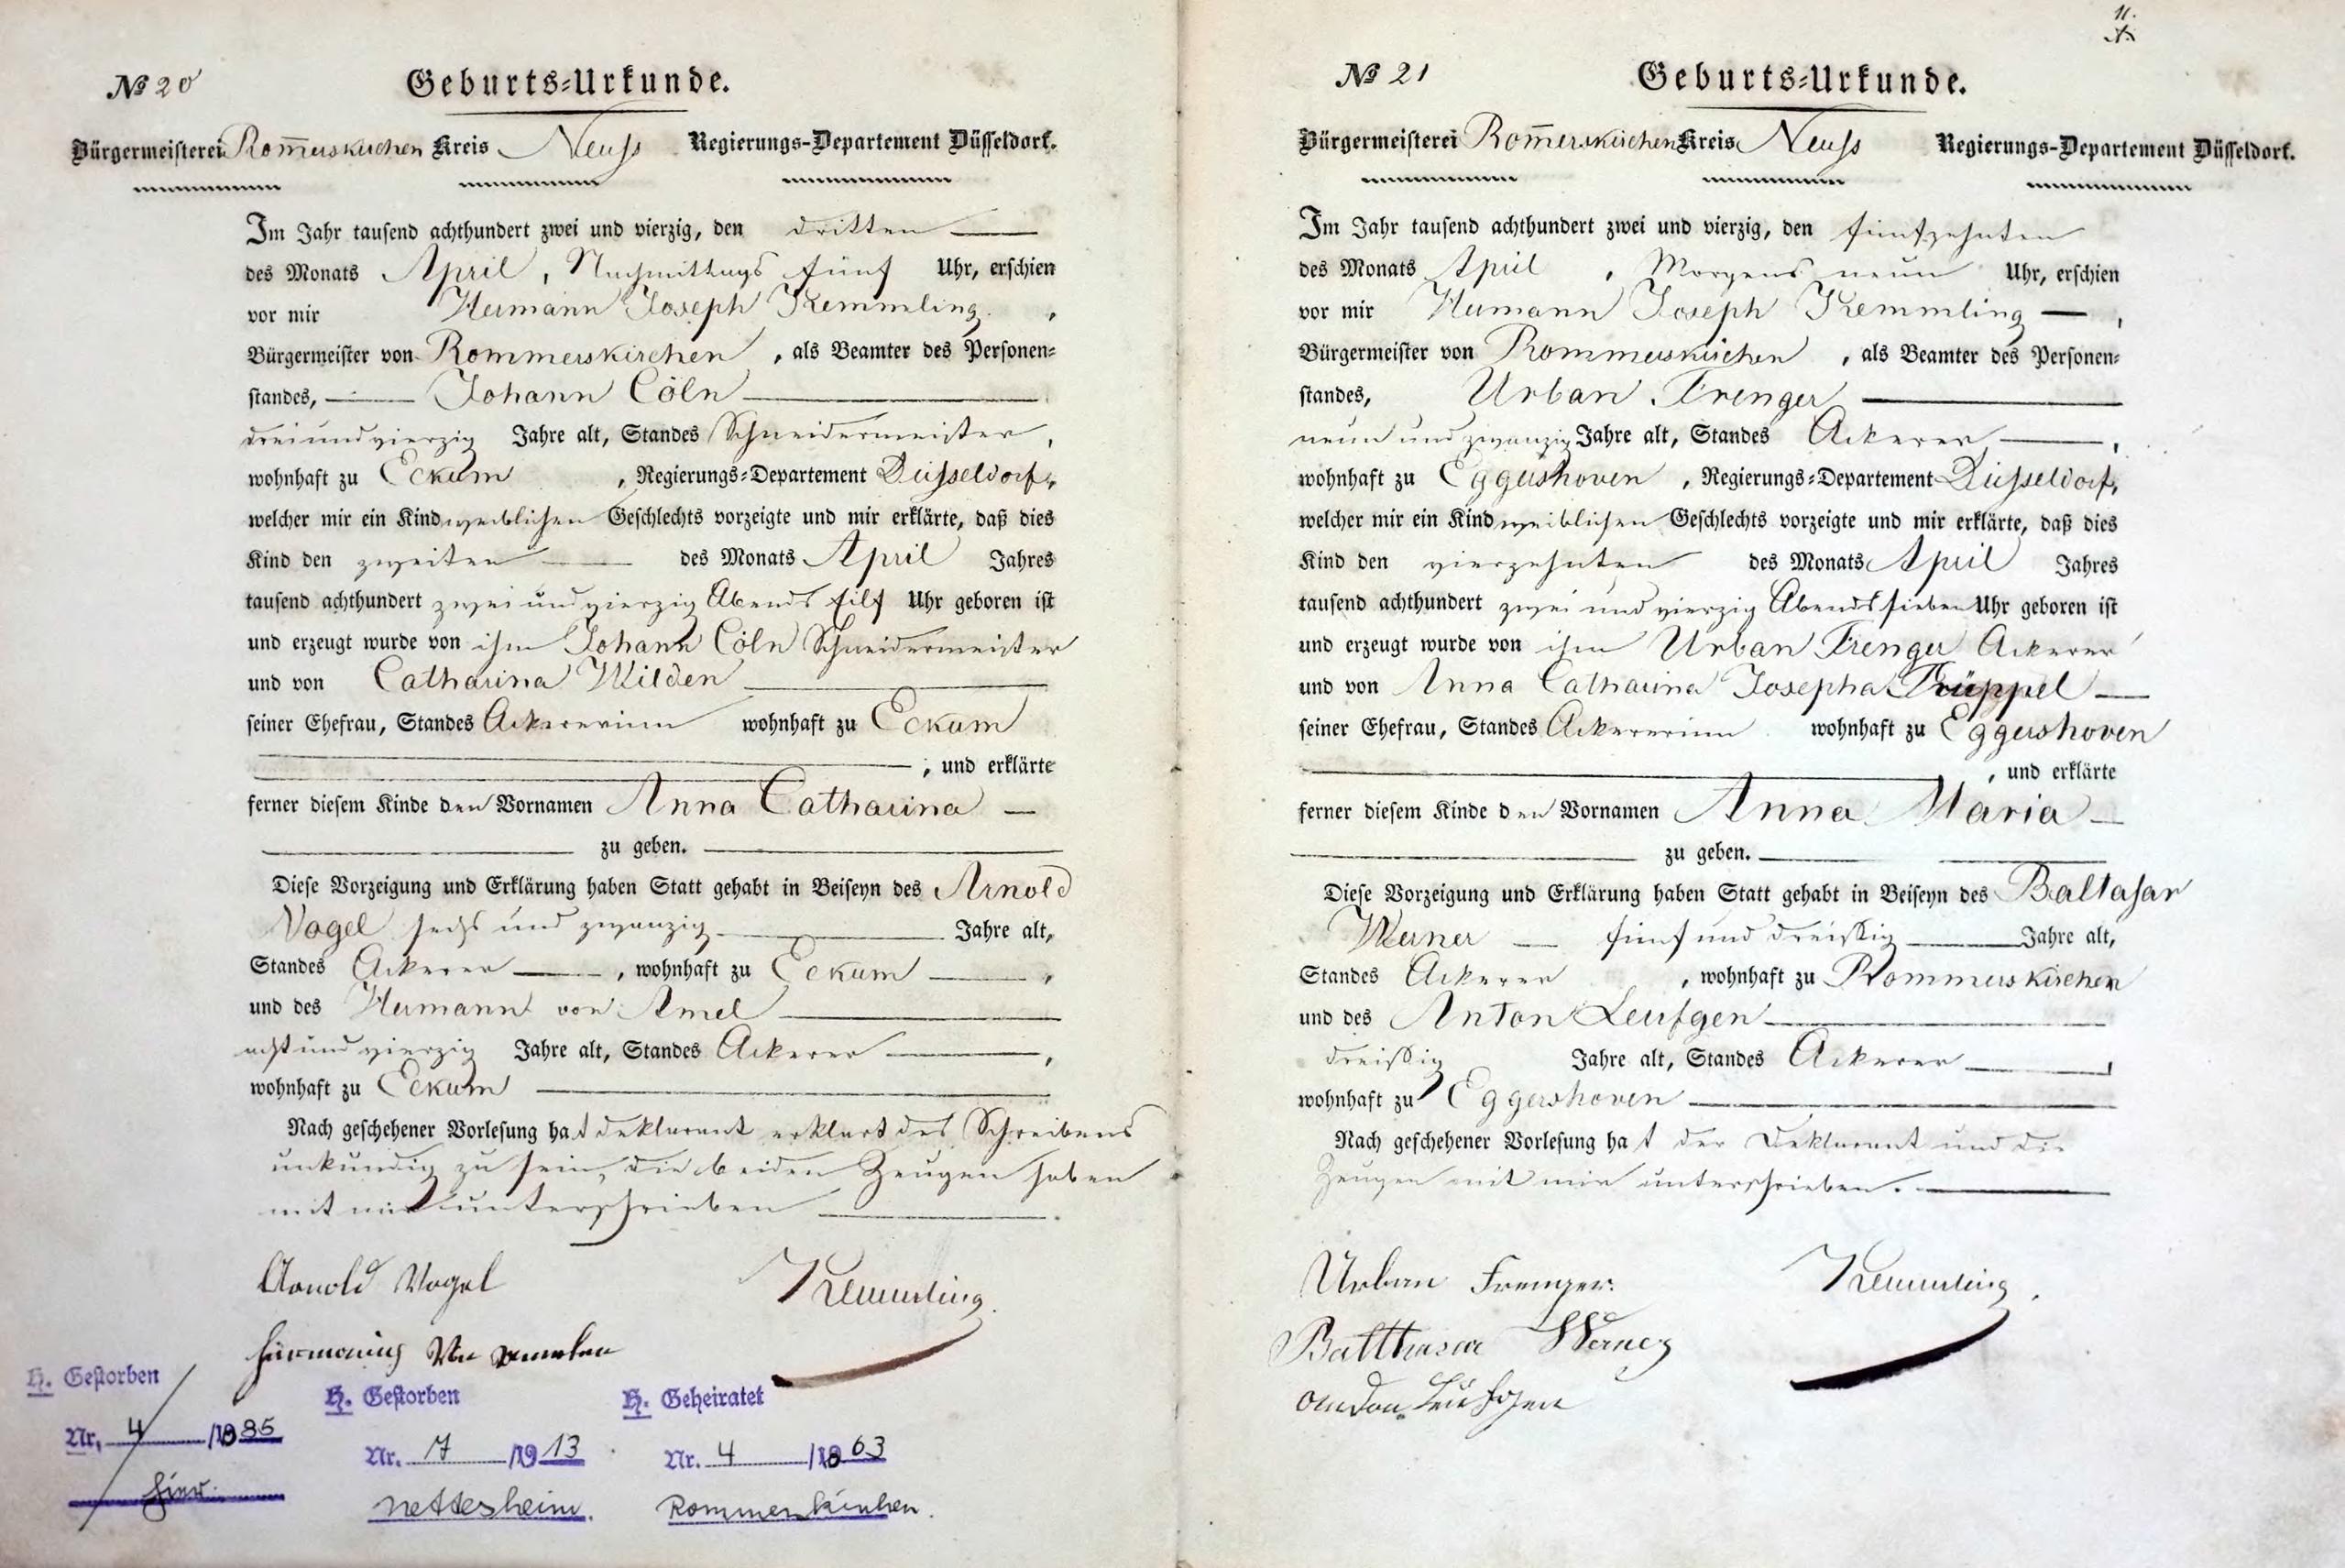 № 20
Geburts-Urkunde.
Bürgermeisterei Rom̅erskirchen Kreis Neuss Regierungs-Departement Düsseldorf.
Im Jahr tausend achthundert zwei und vierzig, den dritten
des Monats April, Nachmittags fünf Uhr, erschien
vor mir Hermann Joseph Kemmling,
Bürgermeister von Rommerskirchen, als Beamter des Personen-
standes, Johann Cöln
dreiundvierzig Jahre alt, Standes Schneidermeister,
wohnhaft zu Eckum, Regierungs-Departement Düsseldorf,
welcher mir ein Kind weiblichen Geschlechts vorzeigte und mir erklärte, daß dies
Kind den zweiten des Monats April Jahres
tausend achthundert zwei und vierzig Abends eilf Uhr geboren ist
und erzeugt wurde von ihm Johann Cöln Schneidermeister
und von Catharina Wilden
seiner Ehefrau, Standes Ackererinn wohnhaft zu Eckum
, und erklärte
ferner diesem Kinde den Vornamen Anna Catharina
zu geben.
Diese Vorzeigung und Erklärung haben Statt gehabt in Beiseyn des Arnold
Vogel sechs und zwanzig Jahre alt,
Standes Ackerer, wohnhaft zu Eckum,
und des Hermann von Amel
acht und vierzig Jahre alt, Standes Ackerer,
wohnhaft zu Eckum
Nach geschehener Vorlesung hat deklarant erklärt des Schreibens
unkundig zu sein, die beiden Zeugen haben
mit mir unterschrieben.
Arnold Vogel Kemmling.
H. Gestorben
Nr. 4/1885
hier.
H. Gestorben
Nr. 7/1913
Nettesheim.
H. Geheiratet
Nr. 4/1863
Rommerskirchen.
11.
№ 21
Geburts-Urkunde.
Bürgermeisterei Rom̅erskirchen Kreis Neuss Regierungs-Departement Düsseldorf.
Im Jahr tausend achthundert zwei und vierzig, den fünfzehnten
des Monats April, Morgens neun Uhr, erschien
vor mir Hermann Joseph Kemmling,
Bürgermeister von Rommerskirchen, als Beamter des Personen-
standes, Urban Frenger
neun und zwanzig Jahre alt, Standes Ackerer,
wohnhaft zu Eggershoven, Regierungs-Departement Düsseldorf,
welcher mir ein Kind weiblichen Geschlechts vorzeigte und mir erklärte, daß dies
Kind den vierzehnten des Monats April Jahres
tausend achthundert zwei und vierzig Abends sieben Uhr geboren ist
und erzeugt wurde von ihm Urban Frenger Ackerer
und von Anna Catharina Josepha Trüppel
seiner Ehefrau, Standes Ackererinn wohnhaft zu Eggershoven
, und erklärte
ferner diesem Kinde den Vornamen Anna Maria
zu geben.
Diese Vorzeigung und Erklärung haben Statt gehabt in Beiseyn des Baltasar
Werner fünf und dreißig Jahre alt,
Standes Ackerer, wohnhaft zu Rommerskirchen
und des Anton Leufgen
dreißig Jahre alt, Standes Ackerer,
wohnhaft zu Eggershoven
Nach geschehener Vorlesung hat der Deklarant und die
Zeugen mit mir unterschrieben.
Urban Frenger. Kemmling.
Balthasar Werner